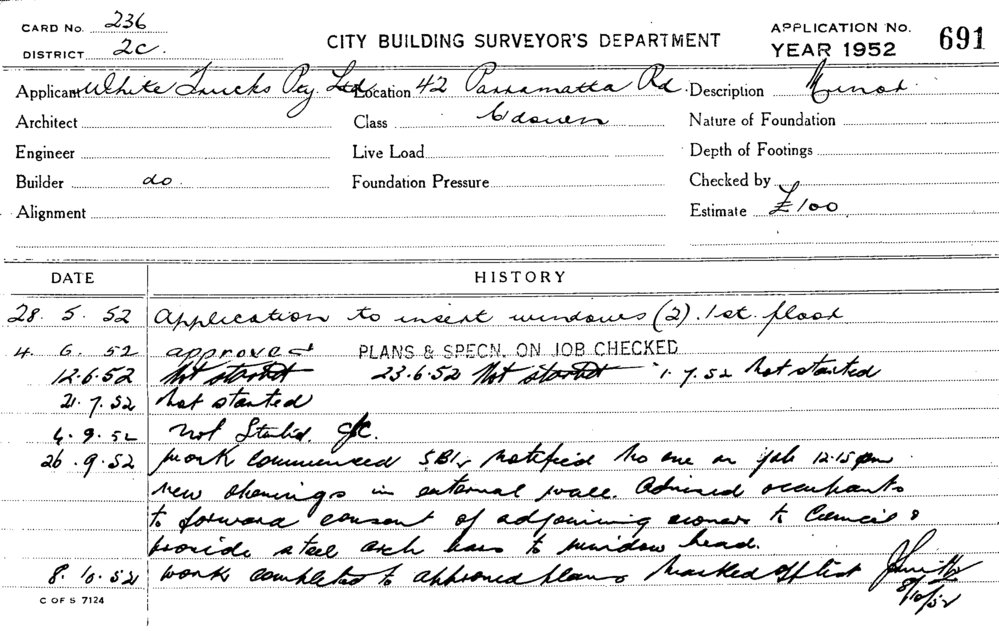 CARD No. 236
DISTRICT 2C.
CITY BUILDING SURVEYOR'S DEPARTMENT
APPLICATION No.
YEAR 1952
691
Applicant White Trucks Pty. Ltd Location 42 Parramatta Rd. Description Minor
Architect Class Nature of Foundation
Engineer Live Load Depth of Footings
Builder do. Foundation Pressure Checked by
Alignment Estimate £100
DATE HISTORY
28. 5. 52 Application to insert windows (2). 1st. floor
4. 6. 52 approved PLANS & SPECN. ON JOB CHECKED
12.6.52 Not started 23.6.52 Not started 1.7.52 Not started
21.7.52 Not started
4.9.52 Not Started.
26.9.52 Work commenced notified no one on job 12.15 pm
new openings in external wall. Advised occupants
to forward consent of adjoining owners to Council &
provide steel arch bars to window head.
8.10.52 work completed to approved plans Marked off list
8/10/52
C OF S 7124